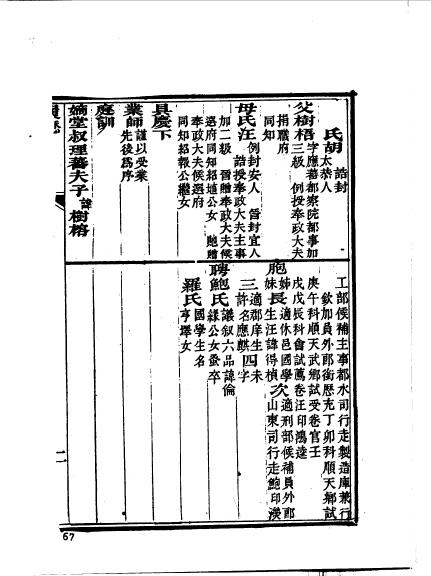 氏胡誥封太恭人
父樹梧字應蕃都察院都事加三級 例授奉政大夫
捐職府同知
母氏汪例封安人 晉封宜人
誥授奉政大夫主事
加二級 晉贈奉政大夫候
選府同知紹墟公女 馳贈
奉政大夫候選府
同知紹報公繼女
具慶下
業師謹以受業先後爲序
庭訓
嫡堂叔理蕃夫子諱樹榕
工部候補主事都水司行走製造庫兼行
欽加員外郎銜歷充丁卯科順天鄉試
庚午科順天武鄉試受卷官壬
戊戊辰科會試薦卷汪印鴻逵
胞姊長適休邑國學生汪諱得楨次適刑部候補員外郎
妹山東司行走鮑印濮
三適郡庠生許名應麒四未字
聘鮑氏議叙六品諱倫綵公女蚤卒
羅氏國學生名亨墿女
十一
67